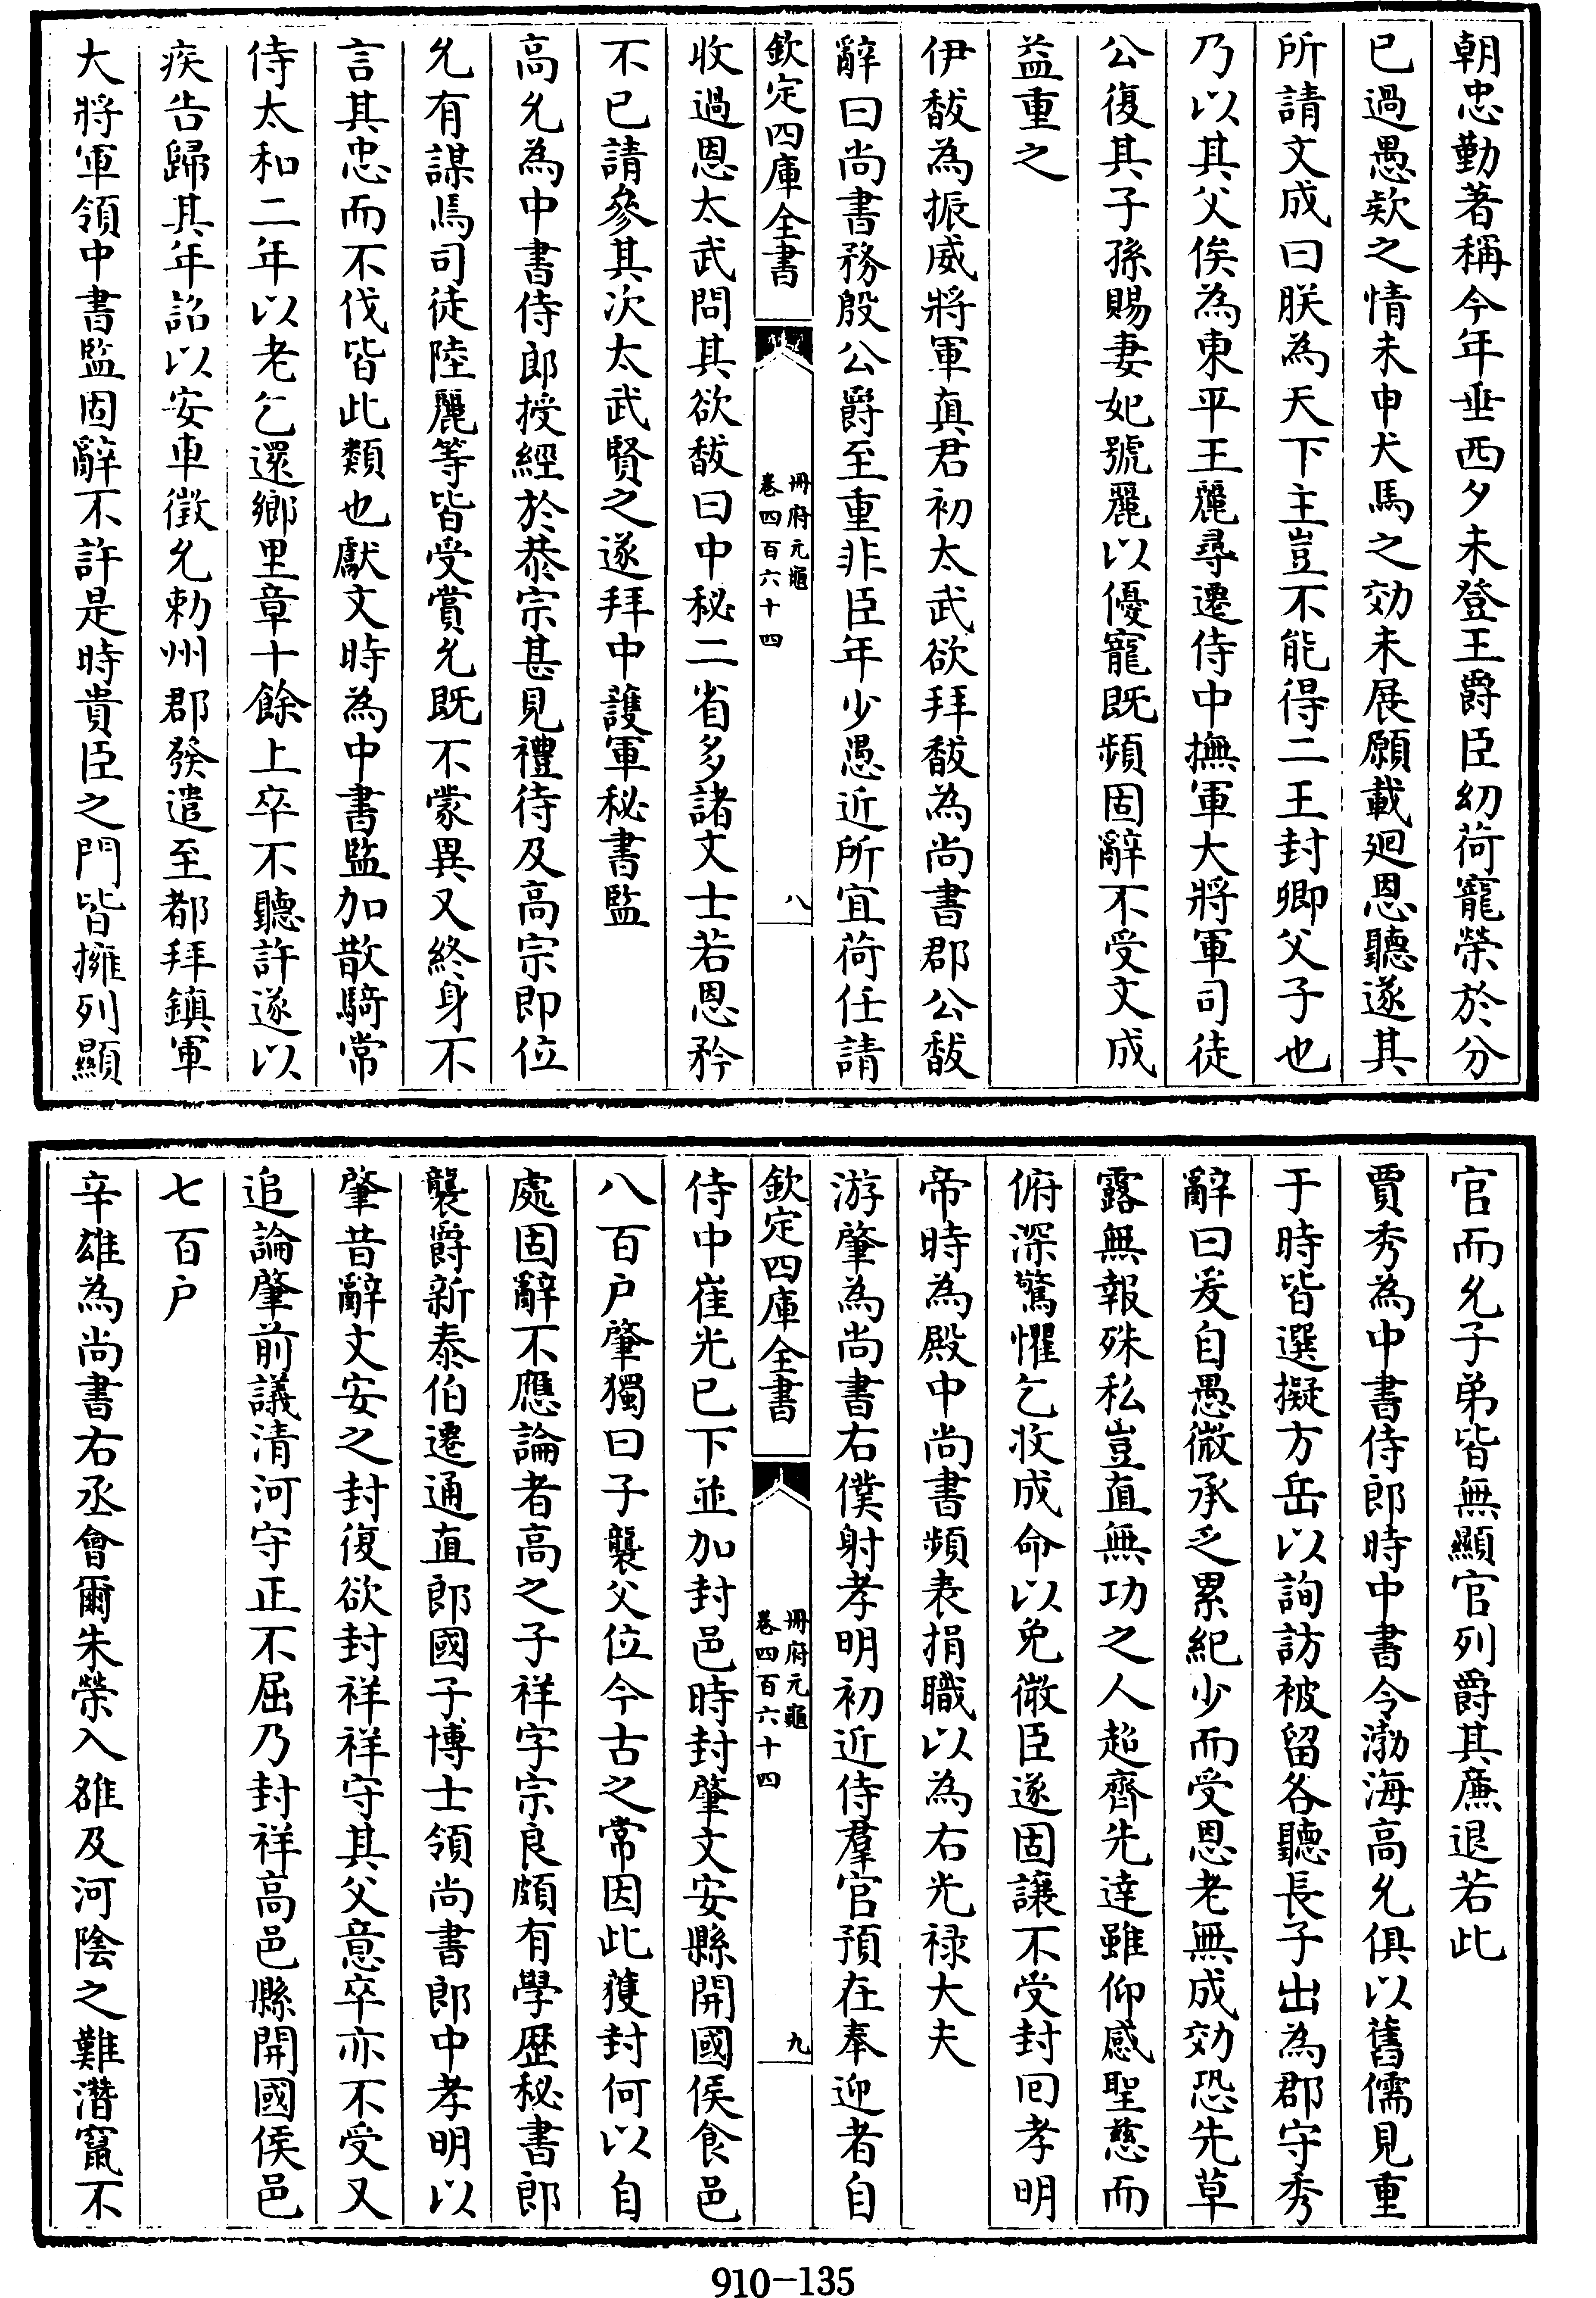 朝忠勤著稱今年垂西夕未登王爵臣幼荷寵榮於分
已過愚欵之情未申犬馬之効未展願載廻恩聽遂其
所請文成曰朕為天下主豈不能得二王封卿父子也
乃以其父俟為東平王麗尋遷侍中撫軍大將軍司徒
公復其子孫賜妻妃號麗以優寵既頻固辭不受文成
益重之
伊馛為振威將軍真君初太武欲拜馛為尚書郡公馛
辭曰尚書務殷公爵至重非臣年少愚近所宜荷任請
欽定四庫全書
冊府元龜
卷四百六十四
八
收過恩太武問其欲馛曰中秘二省多諸文士若恩矜
不已請參其次太武賢之遂拜中護軍秘書監
高允為中書侍郎授經於恭宗甚見禮待及高宗即位
允有謀焉司徒陸麗等皆受賞允既不蒙異又終身不
言其忠而不伐皆此類也獻文時為中書監加散騎常
侍太和二年以老乞還鄉里章十餘上卒不聽許遂以
疾告歸其年詔以安車徵允勑州郡發遣至都拜鎮軍
大將軍領中書監固辭不許是時貴臣之門皆擁列顯
官而允子弟皆無顯官列爵其廉退若此
賈秀為中書侍郎時中書令渤海高允俱以舊儒見重
于時皆選擬方岳以詢訪被留各聽長子出為郡守秀
辭曰爰自愚微承乏累紀少而受恩老無成効恐先草
露無報殊私豈直無功之人超齊先達雖仰感聖慈而
俯深驚懼乞收成命以免微臣遂固讓不受封回孝明
帝時為殿中尚書頻表捐職以為右光祿大夫
游肇為尚書右僕射孝明初近侍羣官預在奉迎者自
欽定四庫全書
冊府元龜
卷四百六十四
九
侍中崔光已下並加封邑時封肇文安縣開國侯食邑
八百户肇獨曰子襲父位今古之常因此獲封何以自
處固辭不應論者高之子祥字宗良頗有學歷秘書郎
襲爵新泰伯遷通直郎國子博士領尚書郎中孝明以
肇昔辭文安之封復欲封祥祥守其父意卒亦不受又
追論肇前議清河守正不屈乃封祥高邑縣開國侯邑
七百户
辛雄為尚書右丞會爾朱榮入雒及河陰之難潛竄不
910-135